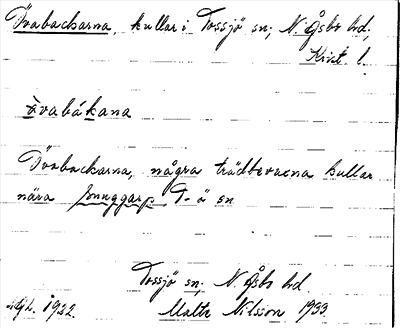 Övabackarna, kullar i Tossjö sn; N. Åsbo hd;
Krist. l.
ö̀vabákana
Övabackarna, några trädbevuxna kullar
nära T-ö sn
Tossjö sn; N. Åsbo hd
1922. Malte Nilsson 1933.